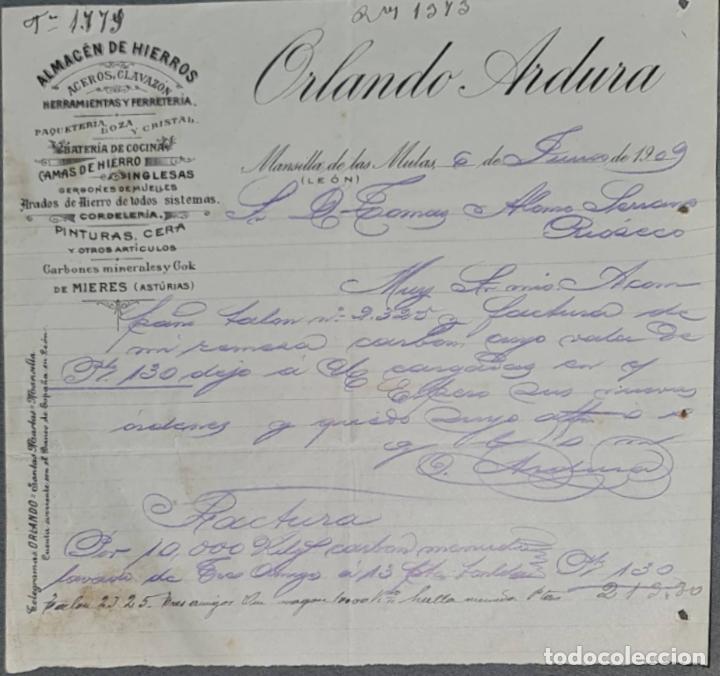 1.779
1373
ALMACÉN DE HIERROS
ACEROS, CLAVAZÓN
HERRAMIENTAS Y FERRETERÍA.
PAQUETERÍA LOZA Y CRISTAL.
BATERÍA DE COCINA
CAMAS DE HIERRO
INGLESAS
GERGONES DE MUELLES
Arados de Hierro de todos sistemas.
CORDELERÍA.
PINTURAS, CERA
Y OTROS ARTÍCULOS
Carbones minerales y Cok
DE MIERES (ASTÚRIAS)
Telegramas ORLANDO = Santas Martas = Mansilla.
Cuenta corriente con el Banco de España en León.
Orlando Ardura
Mansilla de las Mulas, 6 de Junio de 1909
(LEÓN)
Sr. D. Tomas Alonso Serrano
Rioseco
Muy Sr. mio: Acom
paño talon nº 2.325 y factura de
mi remesa carbon cuyo valor de
Pts. 130 dejo á V. cargadas en c/
Espero sus nuevas
órdenes y quedo suyo atto s. s.
q. b. s. m.
O. Ardura
Factura
Por 10,000 Kilgs carbon menudo
lavado de Tres Amigos á 13 Pts. tonelada Pts 130
Talon 2325. Tres amigos Un vagon 10000 Kos hulla menuda Ptas 212.30
todocoleccion.net